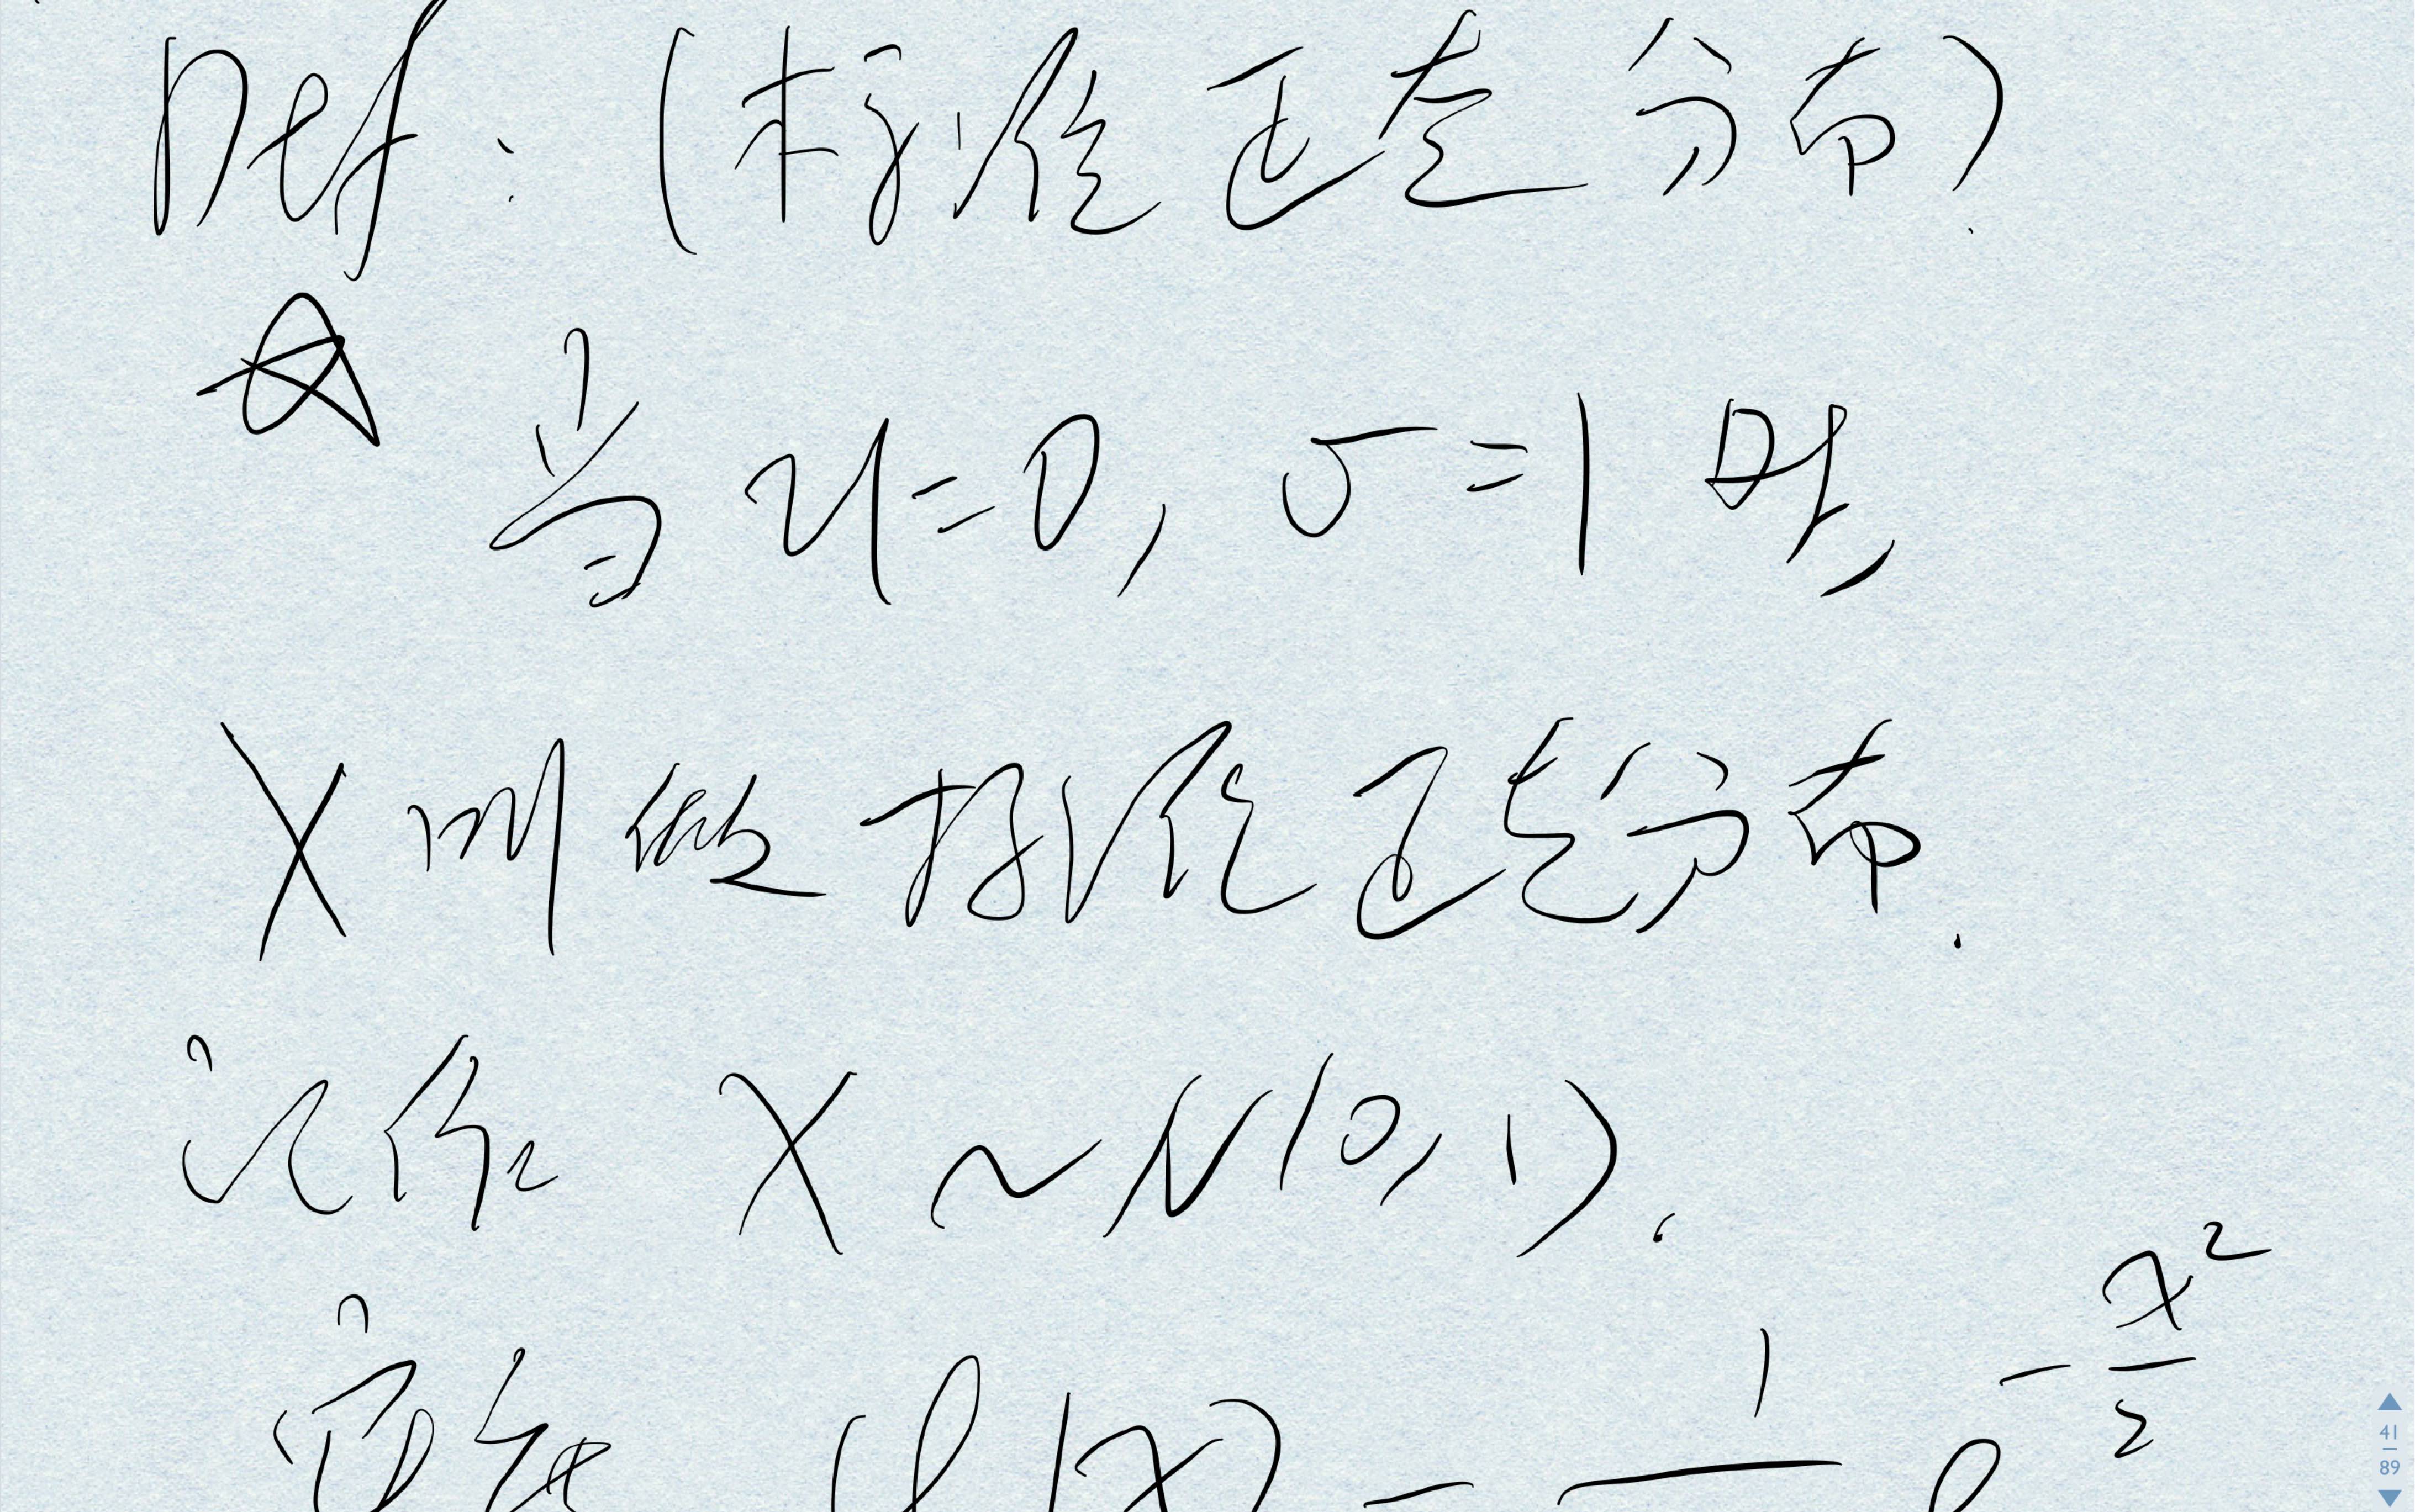 Def: (标准正态分布).
☆ 当 u=0, σ=1 时,
X 叫做标准正态分布.
记作 X ~ N(0,1).
φ(x) = 1 e^{-x²/2}
41
89